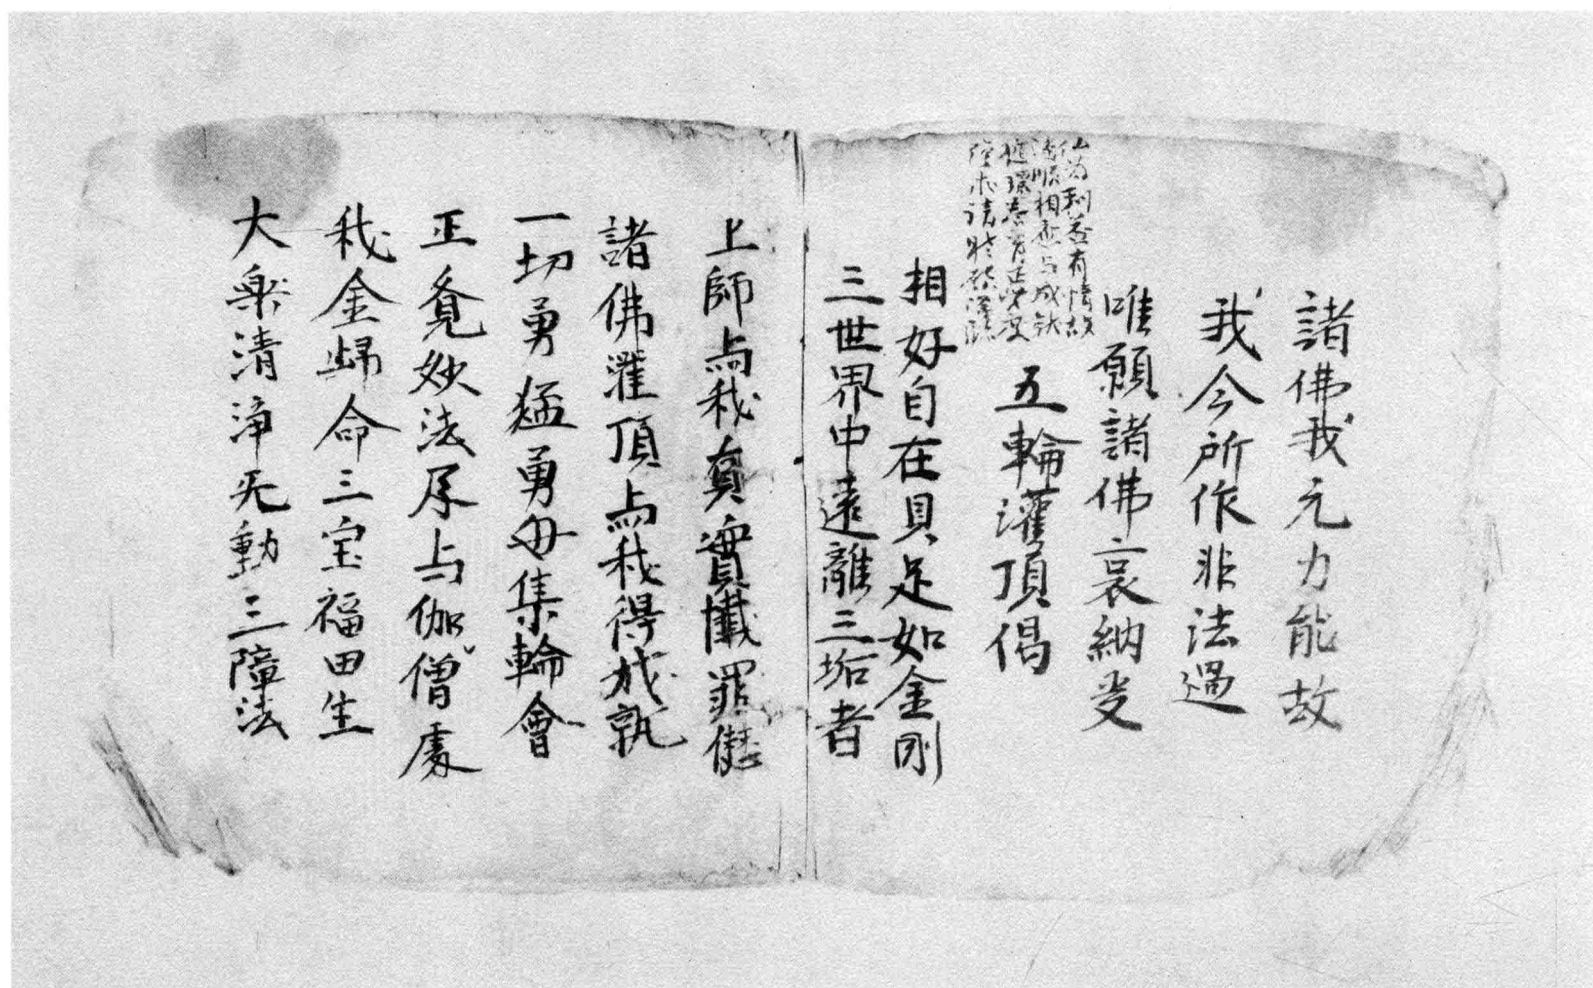 諸佛我元力能故
我今所作非法過
唯願諸佛哀納受
仏為利益有情故
法順相應与成就
五輪灌頂偈
相好自在具足如金剛
三世界中遠離三垢者
上師与我真實懺罪
諸佛灌頂与我得成孰
一切勇猛勇母集輪會
正覓妙法及与伽僧處
我金歸命三宝福田生
大樂清淨无動三障法